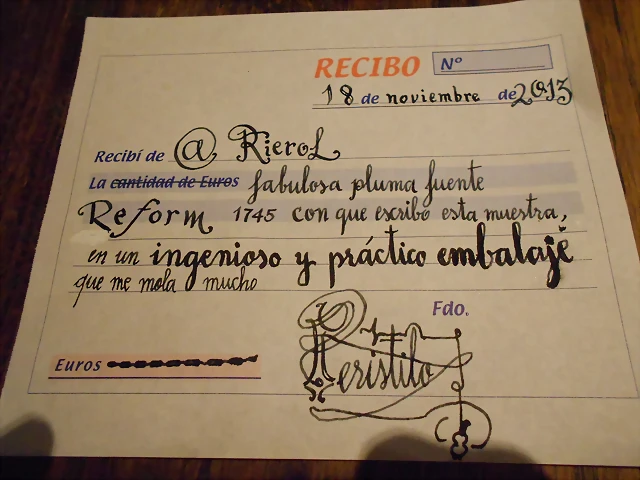 RECIBO Nº
18 de noviembre de 2013
Recibí de @ Rierol
La cantidad de Euros fabulosa pluma fuente
Reform 1745 con que escribo esta muestra,
en un ingenioso y práctico embalaje
que me mola mucho
Fdo.
Peristilo
Euros